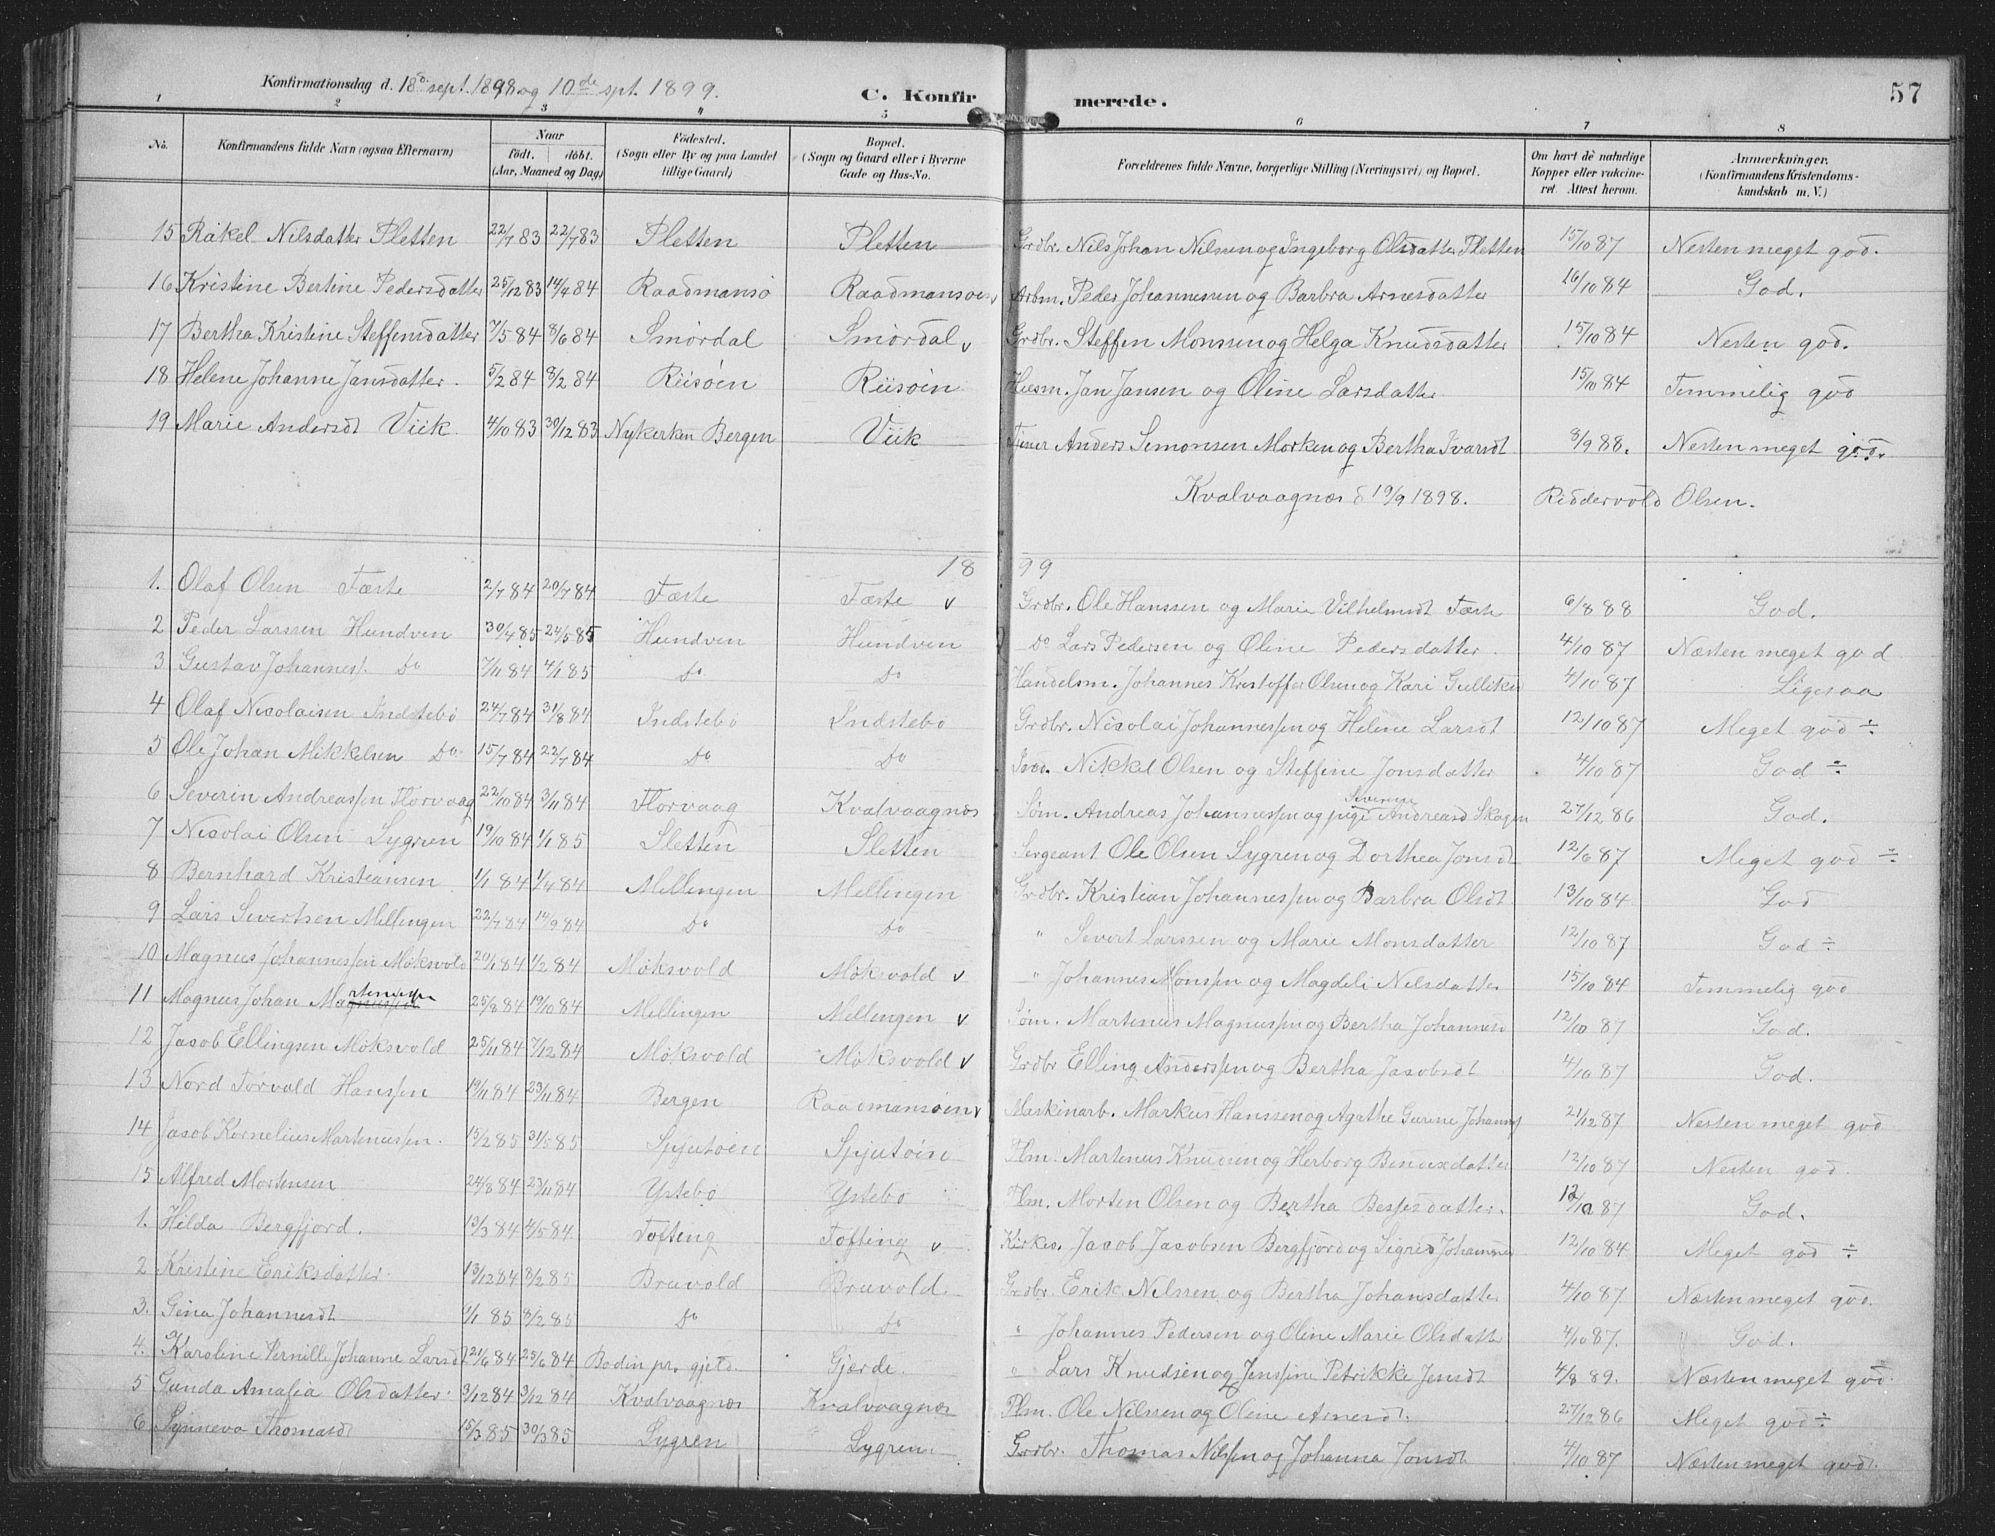 Konfirmationsdag d. 18de sept. 1898 og 10de spt. 1899.
C. Konfirmerede.
57
1 2 3 4 5 6 7 8
No. Konfirmandens fulde Navn (ogsaa Efternavn) Naar födt. döbt. (Aar, Maaned og Dag) Födested. (Sogn eller By og paa Landet tillige Gaard) Bopæl. (Sogn og Gaard eller i Byerne Gade og Hus-No. Forældrenes fulde Navne, borgerlige Stilling (Næringsvei) og Bopæl. Om havt de naturlige Kopper eller vakcineret. Attest herom. Anmerkninger. (Konfirmandens Kristendomskundskab m. V.)
15 Rakel Nilsdatter Pletten 22/7 83 22/7 83 Pletten Pletten Grdbr. Nils Johan Nilsen og Ingeborg Olsdatter Pletten 15/10 87 Nesten meget god.
16 Kristine Bertine Pedersdatter 25/12 83 14/4 84 Raadmansö Raadmansöen v Arbm. Peder Johannesen og Barbra Arnesdatter 16/10 84 God.
17 Bertha Kristine Steffensdatter 7/5 84 8/6 84 Smördal Smördal v Grdbr. Steffen Monssen og Helga Knudsdatter 15/10 84 Nesten god.
18 Helene Johanne Jansdatter. 5/2 84 8/2 84 Riisöen Riisöen Husm. Jan Jansen og Oline Larsdatter 15/10 84 Temmelig god
19 Marie Andersdt Viik. 4/10 83 30/12 83 Nykerken Bergen Viik Anders Simonsen Morken og Bertha Ivarsdt 8/9 88. Nesten meget god.
Kvalvaagnæs d 19/9 1898. Riddervold Olsen.
1899
1. Olaf Olsen Tæste 2/7 84 20/7 84 Tæste Tæste v Grdbr. Ole Hanssen og Marie Vilhelmsdt Tæste 6/8 88 God.
2 Peder Larssen Hundven 30/4 85 24/5 85 Hundven Hundven Do Lars Pedersen og Oline Pedersdatter. 4/10 87 Næsten meget god
3 Gustav Johannest. Do 7/11 84 4/1 85 Do Do Handelsm. Johannes Kristoffer Olsen og Kari Gulliksd 4/10 87 Ligesaa
4 Olaf Nicolaisen Indstebö 24/7 84 31/8 84 Indstebö Indstebö Grdbr. Nicolai Johannessen og Helene Larsdt 12/10 87 Meget god ÷
5 Ole Johan Mikkelsen Do 15/7 84 22/7 84 Do Do Mikkel Olsen og Steffine Jonsdatter 4/10 87 God ÷
6 Severin Andreassen Florvaag 22/10 84 3/11 84 Florvaag Kvalvaagnæs Søm. Andreas Johannessen og pige Severine Andreasd Skagen 27/12 86 God.
7 Nicolai Olsen Lygren 19/10 84 1/1 85 Sletten Sletten Sergeant Ole Olsen Lygren og Dorthea Jonsdt 12/6 87 Meget god ÷
8 Bernhard Kristiansen 1/1 84 1/4 84 Mellingen Mellingen Grdbr. Kristian Johannessen og Barbra Olsdt 13/10 84 God
9 Lars Severtsen Mellingen 22/7 84 14/9 84 Do Do " Severt Larssen og Marie Monsdatter 12/10 87 God ÷
10 Magnus Johannessen Møksvold 20/1 84 1/2 84 Møksvold Møksvold v " Johannes Monsen og Magdeli Nilsdatter 15/10 84 Temmelig god
11 Magnus Johan Martenussen 25/8 84 19/10 84 Mellingen Mellengen v Søm. Martenus Magnussen og Bertha Johannesd 12/10 87 God.
12 Jacob Ellingsen Møksvold 25/11 84 7/12 84 Møksvold Møksvold v Grdbr Elling Anderssen og Bertha Jacobsdt 4/10 87 God.
13 Nord Torvald Hanssen 19/11 84 23/11 84 Bergen Raadmansöen v Maskinarb. Markus Hanssen og Agathe Gurine Johannsd 21/12 87 Nesten meget god
14 Jacob Kornelius Martenussen. 15/2 85 31/5 85 Spjutöien Spjutöin Plm. Martenus Knudsen og Herborg Bendixdatter 12/10 87 Nesten god.
15 Alfred Mortensen 24/8 84 23/11 84 Ystebö Ystebö Plm. Morten Olsen og Bertha Bessesdatter. 12/10 87 God.
1. Hilda Bergfjord. 13/3 84 4/5 84. Tofting Tofting v Kirkes. Jacob Jacobsen Bergfjord og Sigrid Johannes 12/10 84 Meget god ÷
2 Kristine Eriksdatter 13/12 84 8/2 85 Bruvold Bruvold. Grdbr Erik Nilssen og Bertha Johansdatter 4/10 87 Næsten meget god.
3. Gina Johannesdt 1/1 85 8/2 85 Do Do " Johannes Pedersen og Oline Marie Olsdatter 4/10 87. God.
4. Karoline Pernille Johanne Larsdt 21/6 84 25/6 84 Bodin pr. gjeld Gjærde. " Lars Knudsen og Jenssine Petrikke Jensdt 4/8 89. Næsten meget god.
5 Gunda Amalia Olsdatter. 3/12 84 3/12 84 Kvalvaagnæs Kvalvaagnæs Plm. Ole Nilssen og Oline Arnesdt. 27/12 86 Meget god ÷
6 Synneva Thomasd 15/3 85 30/3 85 Lygren Lygren Grdbr. Thomas Nilssen og Johanna Jonsdt 4/10 87 Næsten meget god.